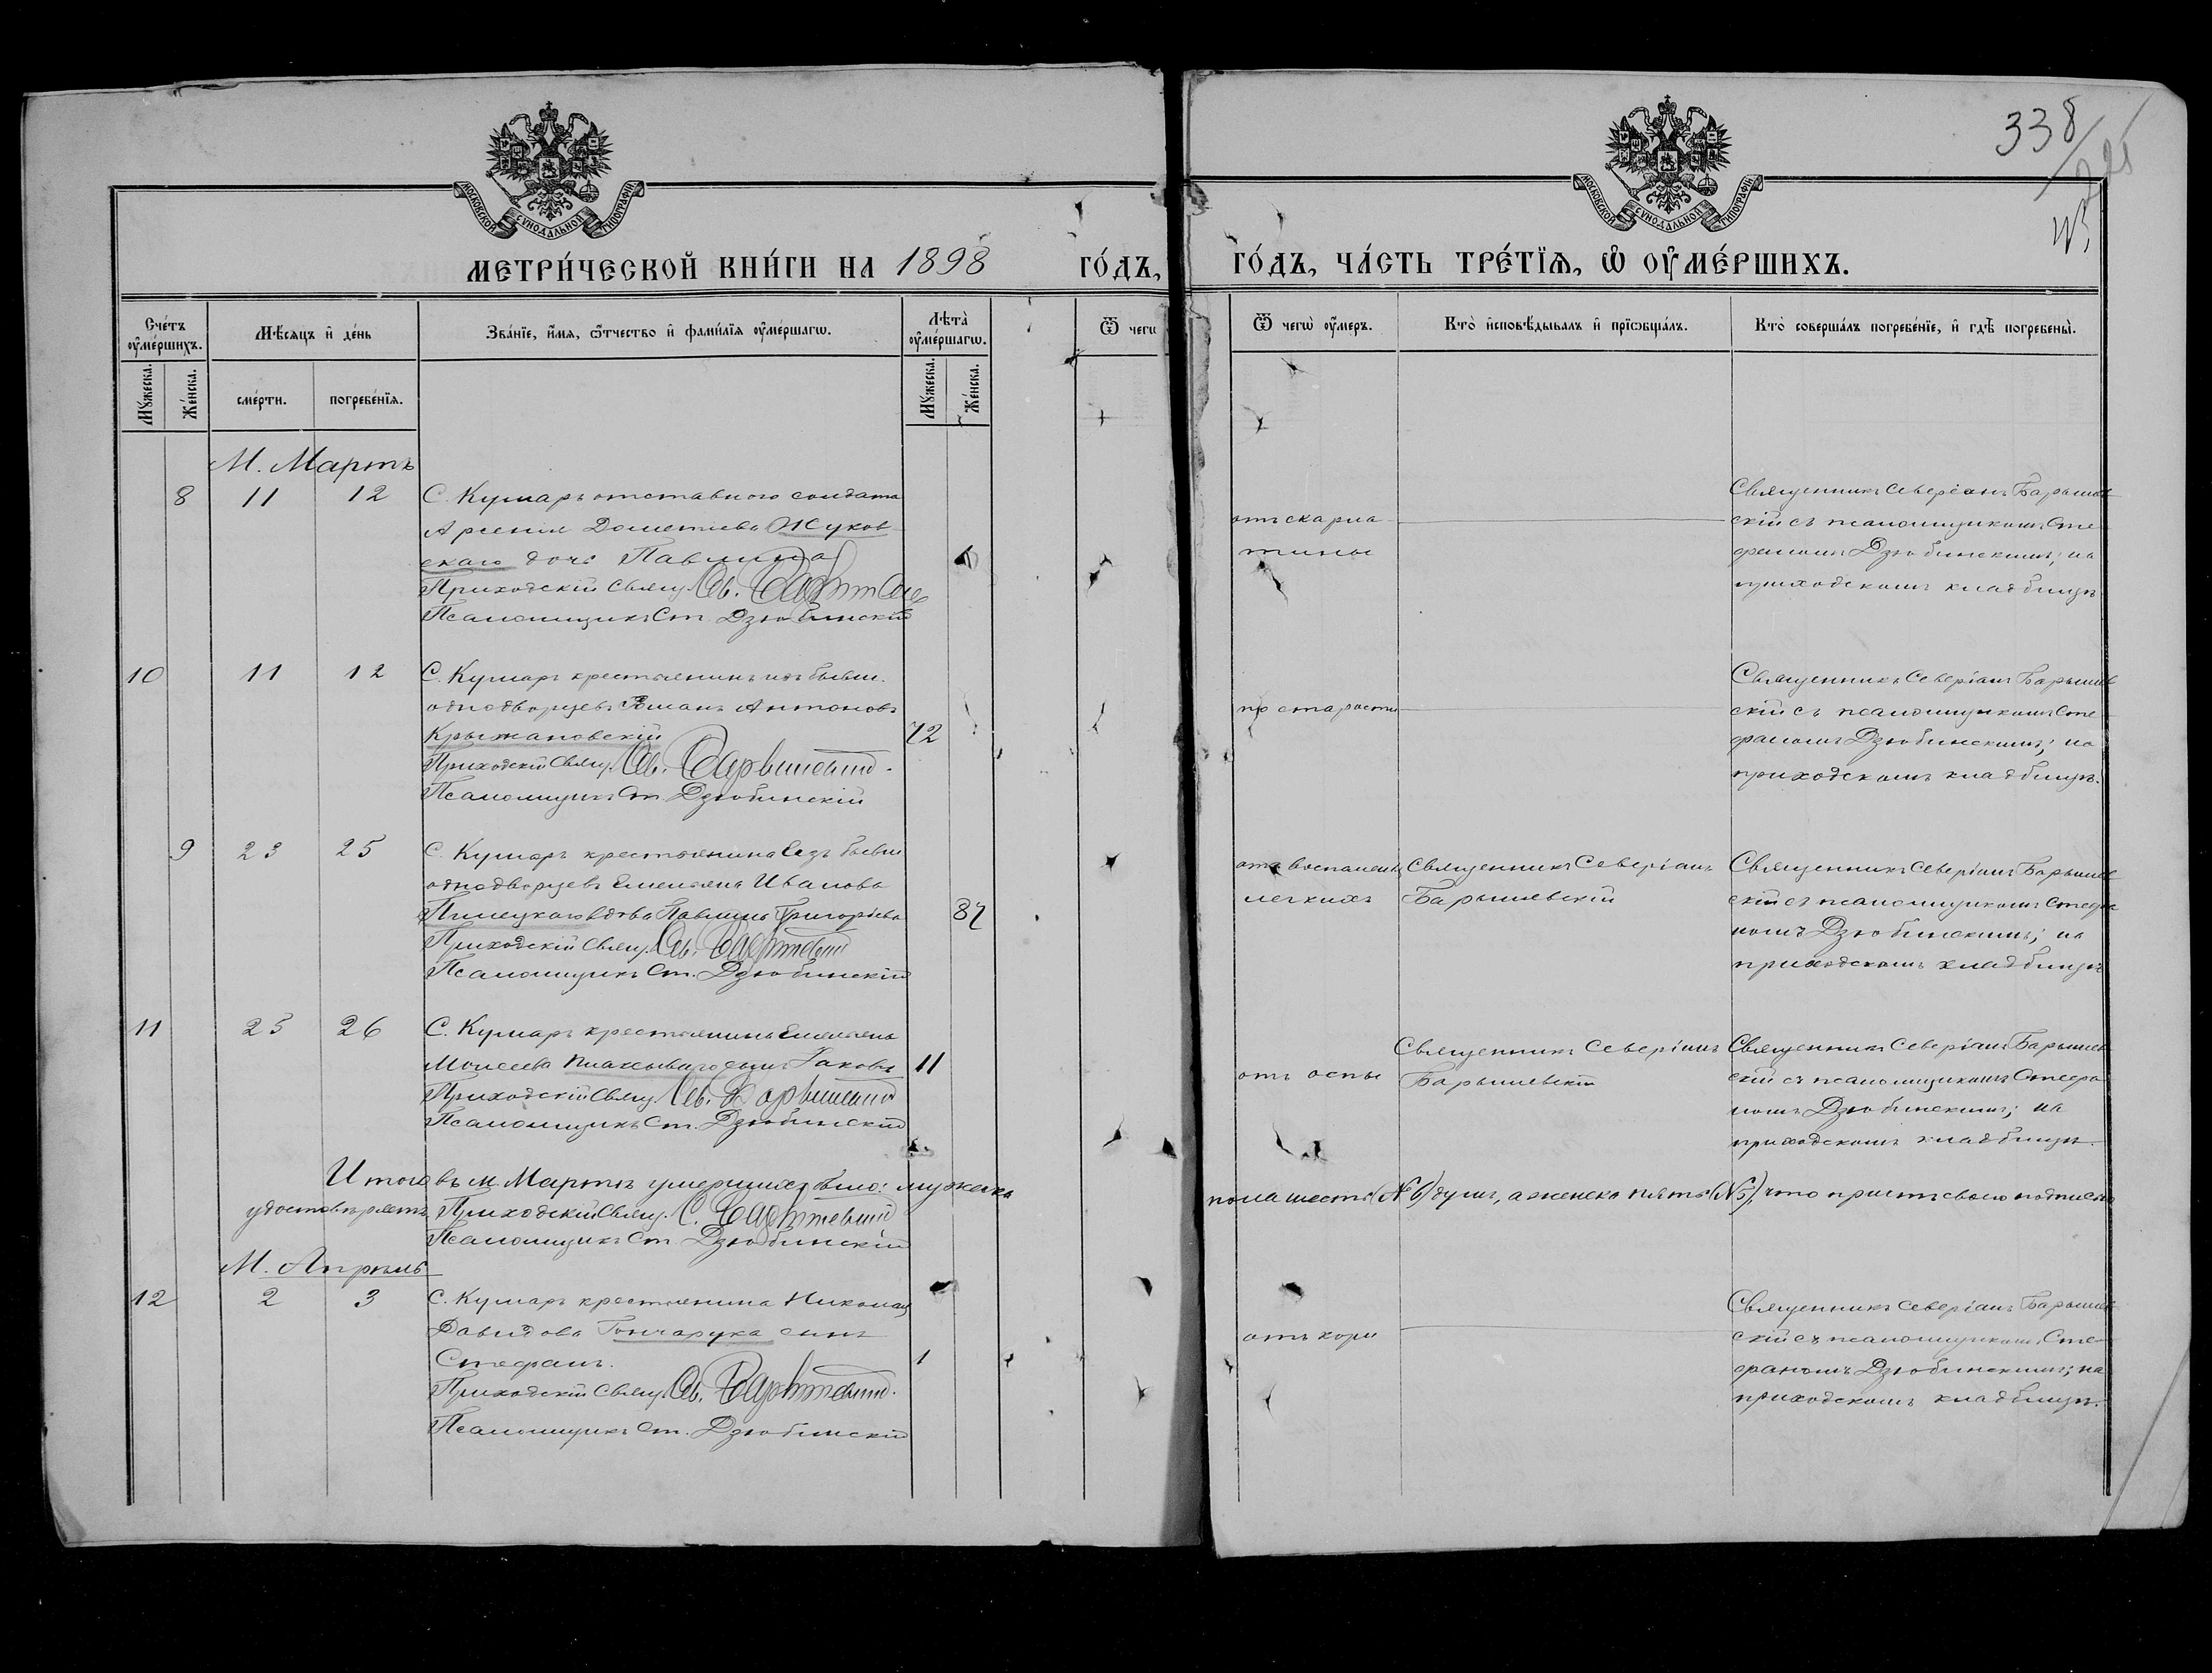 338
МОСКОВСКОЙ СУНОДАЛЬНОЙ ТИПОГРАФІИ
МОСКОВСКОЙ СУНОДАЛЬНОЙ ТИПОГРАФІИ
МЕТРИ́ЧЕСКОЙ КНИ́ГИ НА 1898 ГО́ДЪ,
ГО́ДЪ, ЧА́СТЬ ТРЕ́ТЇѦ, Ѡ҆ ОУ҆МЕ́РШИХЪ.
Сче́тъ оу҆ме́ршихъ.
Мꙋ́жеска.
Же́нска.
Мѣ́сѧцъ и҆ де́нь
сме́рти.
погребе́нїѧ.
Зва́нїе, и҆́мѧ, ѻ҆́тчество и҆ фами́лїѧ оу҆ме́ршагѡ.
Лѣ́та оу҆ме́ршагѡ.
Мꙋ́жеска.
Же́нска.
Ѿ чегѡ
Ѿ чегѡ̀ оу҆́меръ.
Кто̀ и҆сповѣ́дывалъ и҆ прїѡбща́лъ.
Кто̀ соверша́лъ погребе́нїе, и҆ гдѣ̀ погребены̀.
М. Мартъ
8 11 12 С. Кумаръ отставного солдата
Арсенія Дометіева Жуков
скаго дочь Павлина
Приходскій Свящ. Св. Барышевскій
Псаломщикъ Ст. Дзюбинскій
отъ скарла
тины
Священникъ Северіанъ Барышев
скій съ псаломщикомъ Сте
фаномъ Дзюбинскимъ; на
приходскомъ кладбищѣ
10 11 12 С. Кумаръ крестьянинъ изъ бывш.
однодворцевъ Романъ Антоновъ
Крыжановскій 72
Приходскій Свящ. Св. Барышевскій
Псаломщикъ Ст. Дзюбинскій
по старости
Священникъ Северіанъ Барышев
скій съ псаломщикомъ Сте
фаномъ Дзюбинскимъ; на
приходскомъ кладбищѣ.
9 23 25 С. Кумаръ крестьянина изъ бывш
однодворцевъ Емельяна Иванова
вдова Павлина Григоріева 87
Приходскій Свящ. Св. Барышевскій
Псаломщикъ Ст. Дзюбинскій
отъ воспален
легкихъ
Священникъ Северіанъ
Барышевскій
Священникъ Северіанъ Барышев
скій съ псаломщикомъ Стефа
номъ Дзюбинскимъ; на
приходскомъ кладбищѣ
11 25 26 С. Кумаръ крестьянина Емельяна
Моисеева сынъ Іаковъ 11
Приходскій Свящ. Св. Барышевскій
Псаломщикъ Ст. Дзюбинскій
отъ оспы
Священникъ Северіанъ
Барышевскій
Священникъ Северіанъ Барышев
скій съ псаломщикомъ Стефа
номъ Дзюбинскимъ; на
приходскомъ кладбищѣ.
Итого въ м. Мартѣ умершихъ было: мужеска
пола шесть (№ 6) душъ, а женска пять (№ 5), что причтъ своею подписью
удостовѣряетъ. Приходскій Свящ. С. Барышевскій
Псаломщикъ Ст. Дзюбинскій
М. Апрѣль
12 2 3 С. Кумаръ крестьянина Николая
Давидова Гончарука сынъ
Стефанъ. 1
Приходскій Свящ. Св. Барышевскій.
Псаломщикъ Ст. Дзюбинскій
отъ кори
Священникъ Северіанъ Барышев
скій съ псаломщикомъ Сте
фаномъ Дзюбинскимъ; на
приходскомъ кладбищѣ.